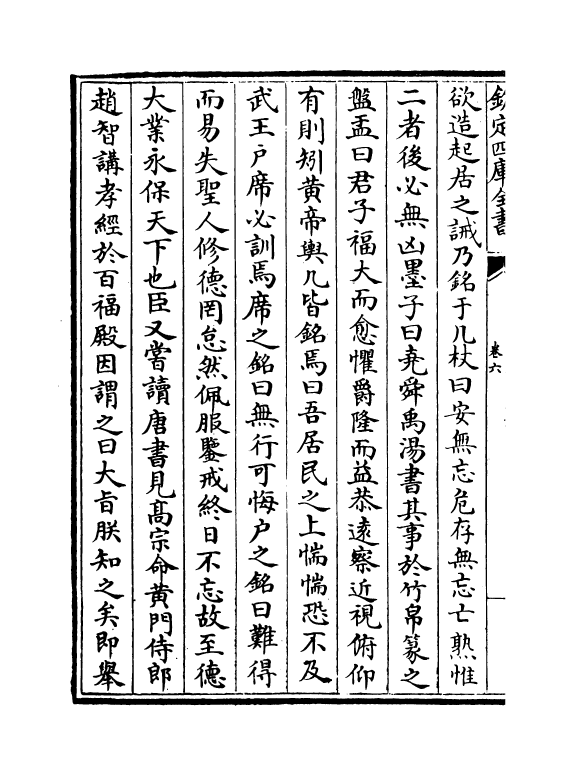 欽定四庫全書
卷六
欲造起居之誡乃銘于几杖曰安無忘危存無忘亡熟惟
二者後必無凶墨子曰堯舜禹湯書其事於竹帛篆之
盤盂曰君子福大而愈懼爵隆而益恭遠察近視俯仰
有則矧黃帝輿几皆銘焉曰吾居民之上惴惴恐不及
武王户席必訓焉席之銘曰無行可悔户之銘曰難得
而易失聖人修德罔怠然佩服鑒戒終日不忘故至德
大業永保天下也臣又嘗讀唐書見髙宗命黄門侍郎
趙智講孝經於百福殿因謂之曰大旨朕知之矣即舉